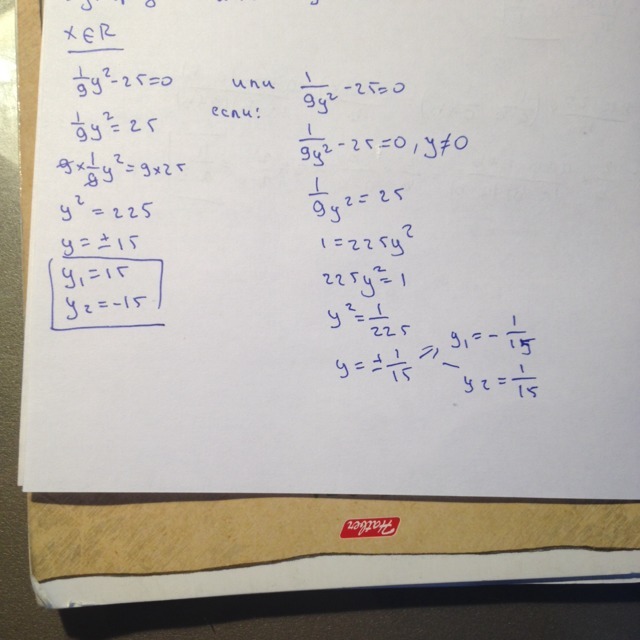 x∈R
1/9 y² - 25 = 0
1/9 y² = 25
9 × 1/9 y² = 9 × 25
y² = 225
y = ± 15
y₁ = 15
y₂ = -15
или
если:
1/9y² - 25 = 0
1/9y² - 25 = 0, y ≠ 0
1/9y² = 25
1 = 225y²
225y² = 1
y² = 1/225
y = ± 1/15 ⇒ y₁ = - 1/15
y₂ = 1/15
Hatber